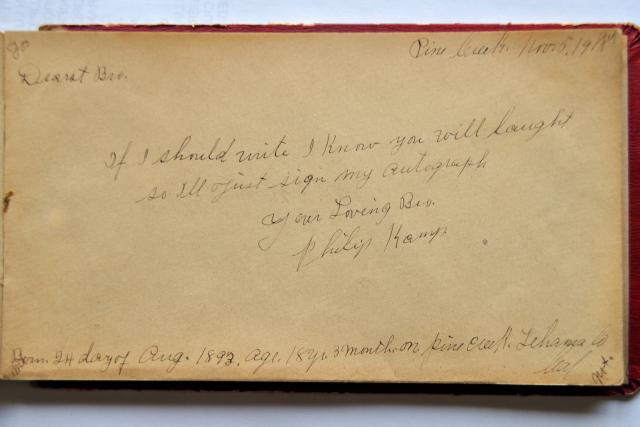 Pine Creek. Nov. 5, 19
Dearest Bro.
If I should write I know you will laught
so Ill just sign my autograph
Your Loving Bro.
Philip Kamp
Born. 24 day of Aug. 1892. age. 18 yr. 3 month. on pine creek. Tehama Co
Cal